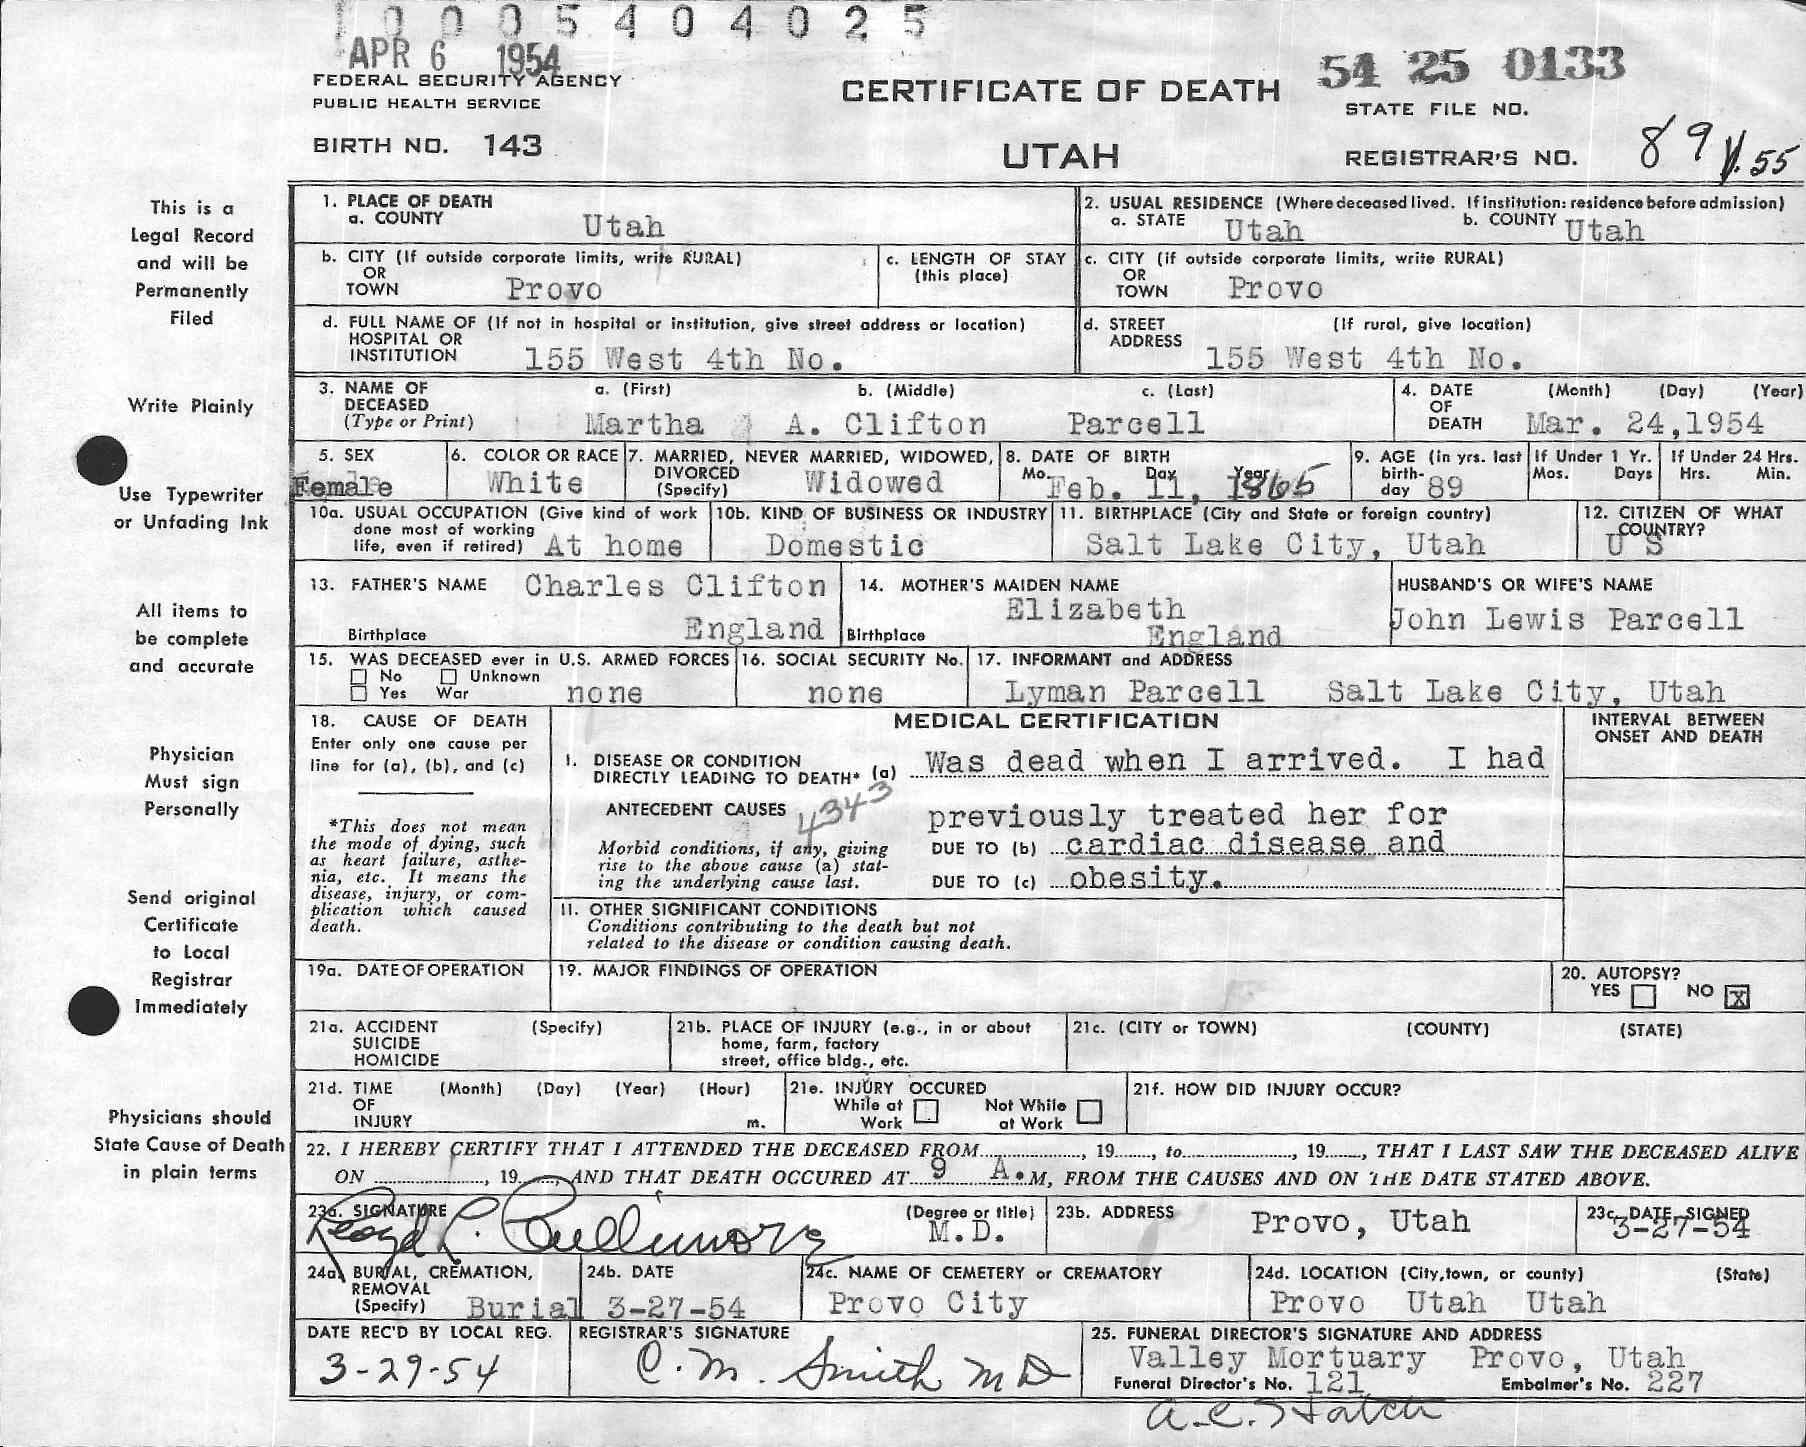 10005404025
APR 6 1954
54 25 0133
FEDERAL SECURITY AGENCY
PUBLIC HEALTH SERVICE
CERTIFICATE OF DEATH
STATE FILE NO.
BIRTH NO. 143
UTAH
REGISTRAR'S NO. 89 V.55
This is a
Legal Record
and will be
Permanently
Filed
Write Plainly
Use Typewriter
or Unfading Ink
All items to
be complete
and accurate
Physician
Must sign
Personally
Send original
Certificate
to Local
Registrar
Immediately
Physicians should
State Cause of Death
in plain terms
1. PLACE OF DEATH
a. COUNTY Utah
2. USUAL RESIDENCE (Where deceased lived. If institution: residence before admission)
a. STATE Utah b. COUNTY Utah
b. CITY (If outside corporate limits, write RURAL)
OR
TOWN Provo
c. LENGTH OF STAY
(this place)
c. CITY (if outside corporate limits, write RURAL)
OR
TOWN Provo
d. FULL NAME OF (If not in hospital or institution, give street address or location)
HOSPITAL OR
INSTITUTION 155 West 4th No.
d. STREET (If rural, give location)
ADDRESS
155 West 4th No.
3. NAME OF a. (First) b. (Middle) c. (Last)
DECEASED
(Type or Print) Martha A. Clifton Parcell
4. DATE (Month) (Day) (Year)
OF
DEATH Mar. 24,1954
5. SEX
Female
6. COLOR OR RACE
White
7. MARRIED, NEVER MARRIED, WIDOWED,
DIVORCED
(Specify) Widowed
8. DATE OF BIRTH
Mo. Day Year
Feb. 11, 1865
9. AGE (in yrs. last
birth-
day 89
If Under 1 Yr.
Mos. Days
If Under 24 Hrs.
Hrs. Min.
10a. USUAL OCCUPATION (Give kind of work
done most of working
life, even if retired) At home
10b. KIND OF BUSINESS OR INDUSTRY
Domestic
11. BIRTHPLACE (City and State or foreign country)
Salt Lake City, Utah
12. CITIZEN OF WHAT
COUNTRY?
U S
13. FATHER'S NAME Charles Clifton
Birthplace England
14. MOTHER'S MAIDEN NAME
Elizabeth
Birthplace England
HUSBAND'S OR WIFE'S NAME
John Lewis Parcell
15. WAS DECEASED ever in U.S. ARMED FORCES
No Unknown
Yes War none
16. SOCIAL SECURITY No.
none
17. INFORMANT and ADDRESS
Lyman Parcell Salt Lake City, Utah
18. CAUSE OF DEATH
Enter only one cause per
line for (a), (b), and (c)
*This does not mean
the mode of dying, such
as heart failure, asthe-
nia, etc. It means the
disease, injury, or com-
plication which caused
death.
MEDICAL CERTIFICATION
INTERVAL BETWEEN
ONSET AND DEATH
I. DISEASE OR CONDITION
DIRECTLY LEADING TO DEATH* (a) Was dead when I arrived. I had
ANTECEDENT CAUSES 4343 previously treated her for
Morbid conditions, if any, giving
rise to the above cause (a) stat-
ing the underlying cause last.
DUE TO (b) cardiac disease and
DUE TO (c) obesity.
II. OTHER SIGNIFICANT CONDITIONS
Conditions contributing to the death but not
related to the disease or condition causing death.
19a. DATE OF OPERATION
19. MAJOR FINDINGS OF OPERATION
20. AUTOPSY?
YES NO X
21a. ACCIDENT (Specify)
SUICIDE
HOMICIDE
21b. PLACE OF INJURY (e.g., in or about
home, farm, factory
street, office bldg., etc.
21c. (CITY or TOWN) (COUNTY) (STATE)
21d. TIME (Month) (Day) (Year) (Hour)
OF
INJURY m.
21e. INJURY OCCURED
While at Not While
Work at Work
21f. HOW DID INJURY OCCUR?
22. I HEREBY CERTIFY THAT I ATTENDED THE DECEASED FROM................, 19......, to..................., 19......, THAT I LAST SAW THE DECEASED ALIVE
ON ................., 19......, AND THAT DEATH OCCURED AT 9 A.M, FROM THE CAUSES AND ON THE DATE STATED ABOVE.
23a. SIGNATURE (Degree or title)
Lloyd L. Cullimore M.D.
23b. ADDRESS Provo, Utah
23c. DATE SIGNED
3-27-54
24a. BURIAL, CREMATION,
REMOVAL
(Specify) Burial
24b. DATE
3-27-54
24c. NAME OF CEMETERY or CREMATORY
Provo City
24d. LOCATION (City, town, or county) (State)
Provo Utah Utah
DATE REC'D BY LOCAL REG.
3-29-54
REGISTRAR'S SIGNATURE
C. M. Smith MD
25. FUNERAL DIRECTOR'S SIGNATURE AND ADDRESS
Valley Mortuary Provo, Utah
Funeral Director's No. 121 Embalmer's No. 227
A.C. Hatch